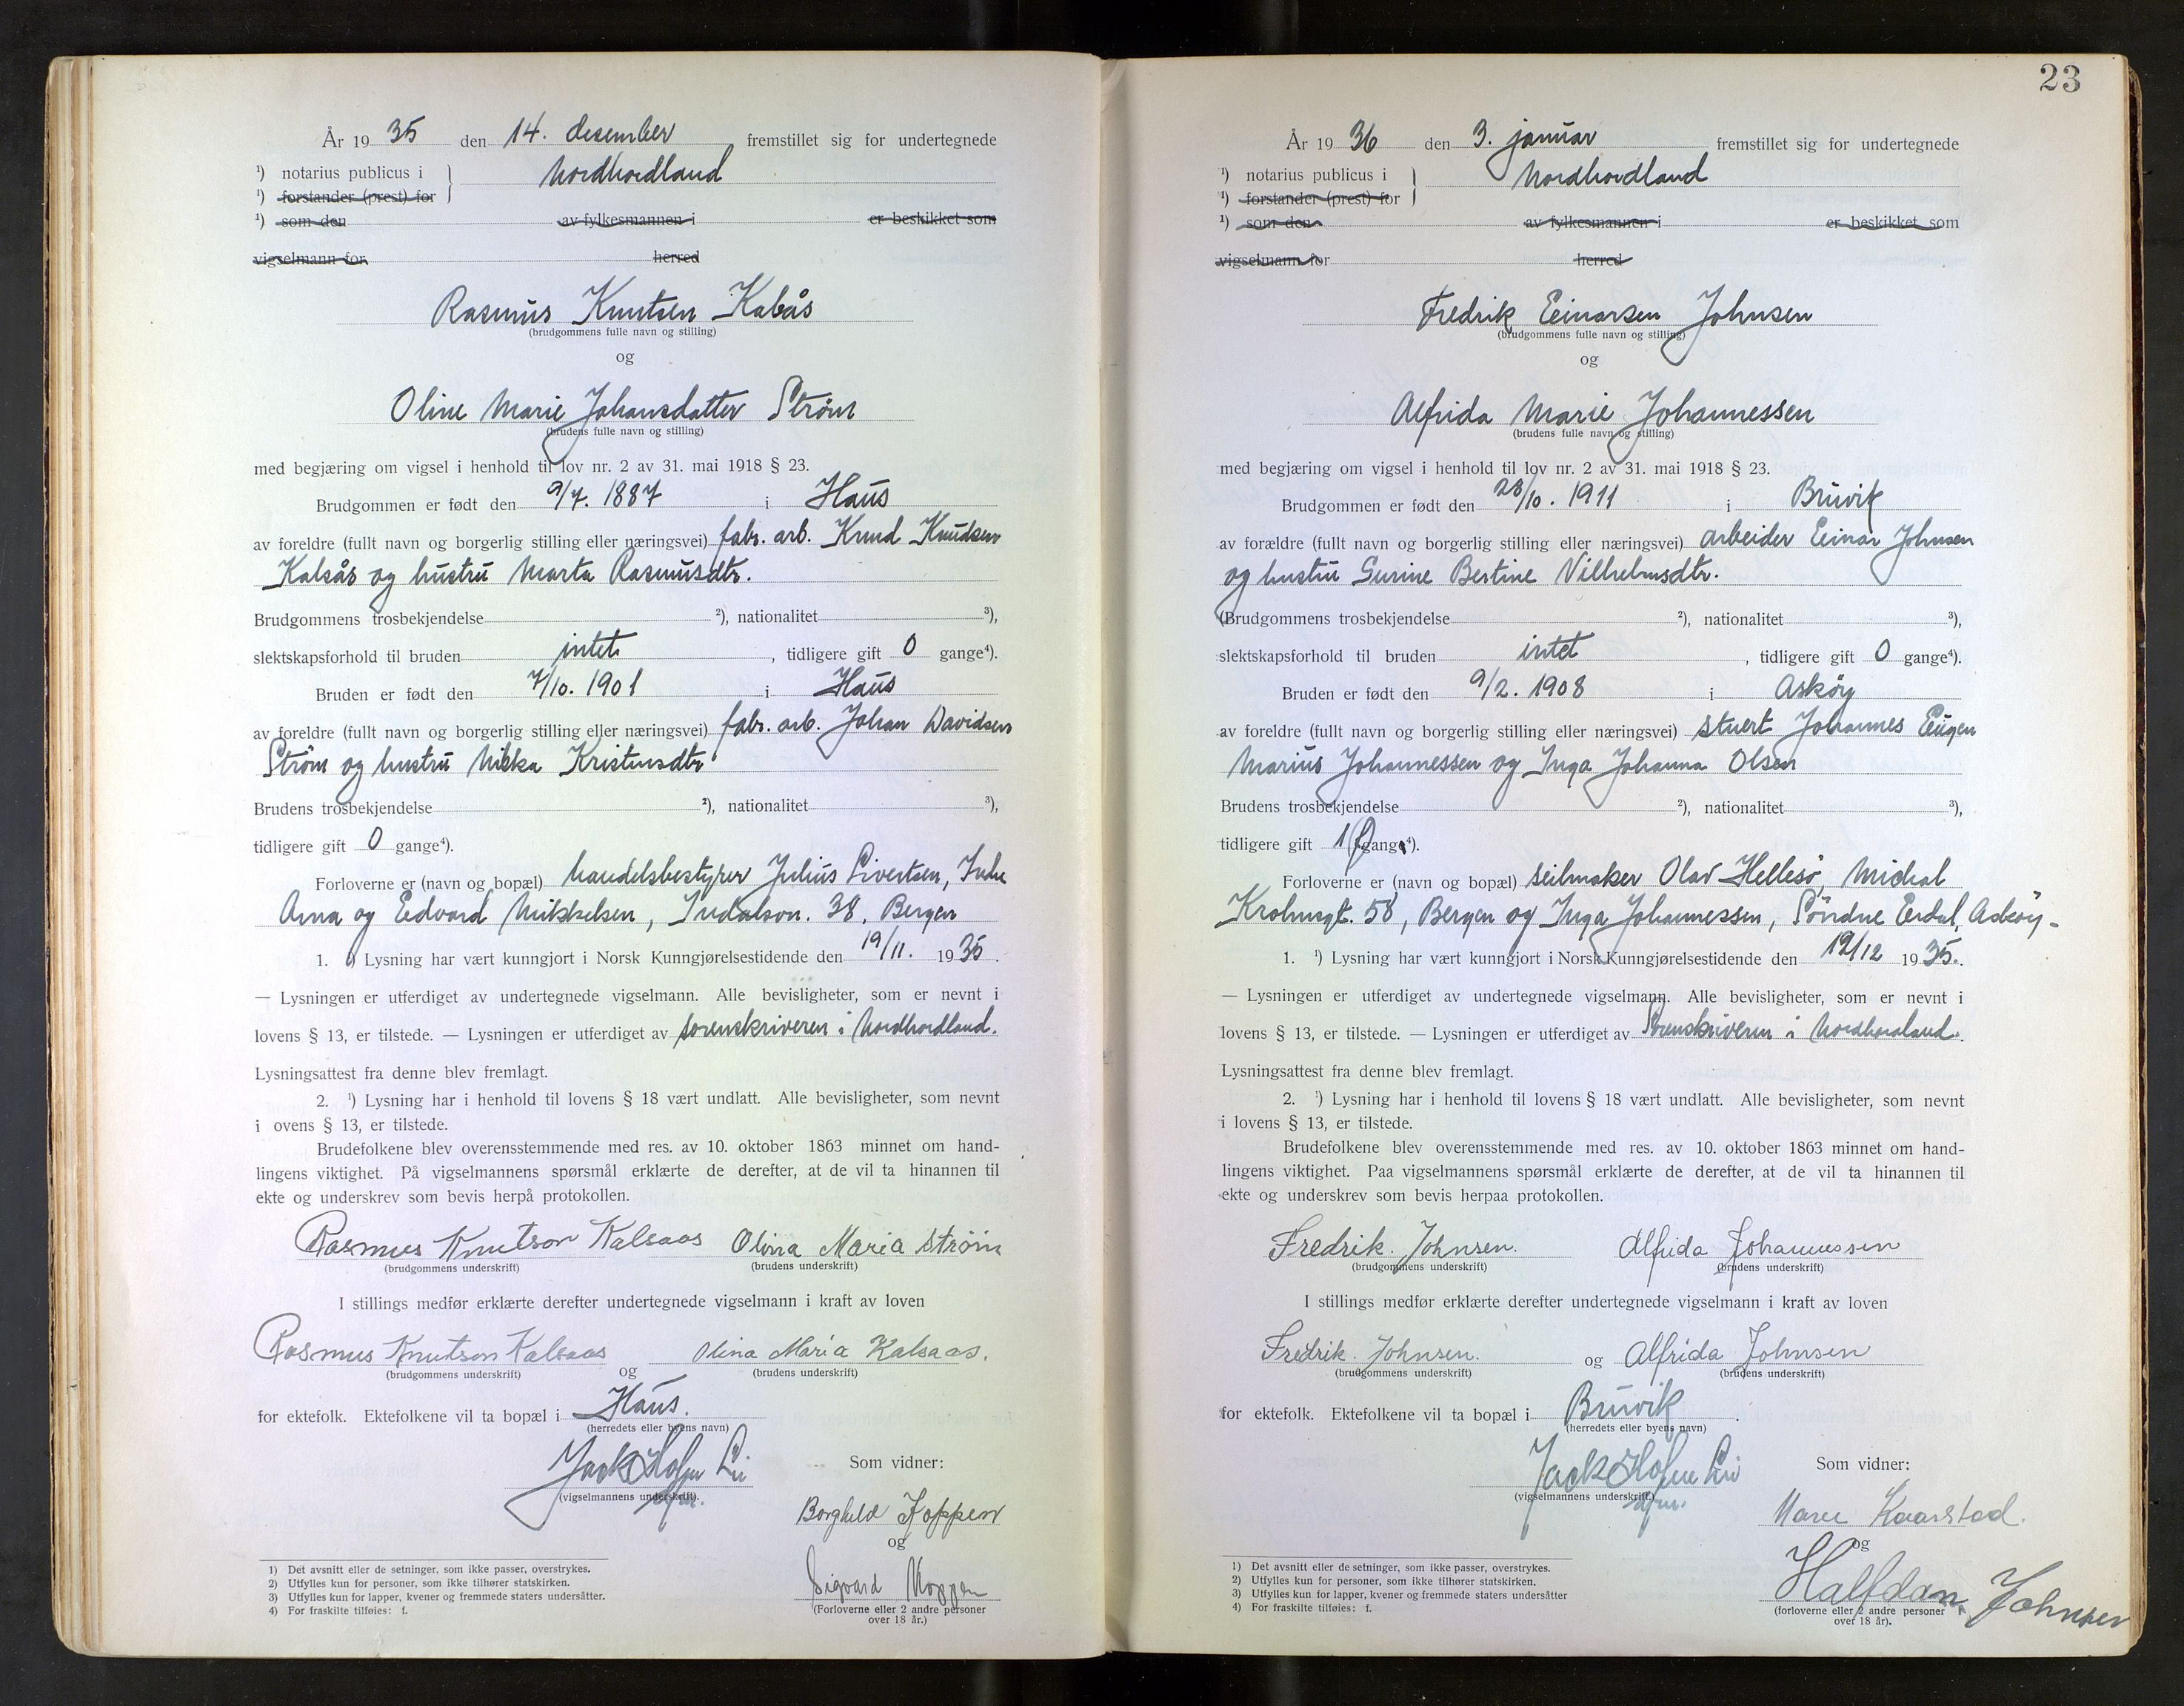 År 19 35 den 14. desember fremstillet sig for undertegnede
¹) notarius publicus i
¹) forstander (prest) for } Nordhordland
¹) som den av fylkesmannen i er beskikket som
vigselmann for herred
Rasmus Knutsen Kalsås
(brudgommens fulle navn og stilling)
og
Oline Marie Johansdatter Strøm
(brudens fulle navn og stilling)
med begjæring om vigsel i henhold til lov nr. 2 av 31. mai 1918 § 23.
Brudgommen er født den 9/7. 1887 i Haus
av foreldre (fullt navn og borgerlig stilling eller næringsvei) fabr. arb. Knud Knudsen
Kalsås og hustru Marta Rasmusdtr.
Brudgommens trosbekjendelse ²), nationalitet ³),
slektskapsforhold til bruden intet, tidligere gift 0 gange⁴).
Bruden er født den 7/10. 1901 i Haus
av foreldre (fullt navn og borgerlig stilling eller næringsvei) fabr. arb. Johan Davidsen
Strøm og hustru Kristinsdtr
Brudens trosbekjendelse ²), nationalitet ³),
tidligere gift 0 gange⁴).
Forloverne er (navn og bopæl) handelsbestyrer Julius Sivertsen, Indre
Arna og Edvard Mikkelsen, 38, Bergen
1. ¹) Lysning har vært kunngjort i Norsk Kunngjørelsestidende den 19/11. 1935.
— Lysningen er utferdiget av undertegnede vigselmann. Alle bevisligheter, som er nevnt i
lovens § 13, er tilstede. — Lysningen er utferdiget av sorenskriveren i Nordhordland.
Lysningsattest fra denne blev fremlagt.
2. ¹) Lysning har i henhold til lovens § 18 vært undlatt. Alle bevisligheter, som nevnt
i ovens § 13, er tilstede.
Brudefolkene blev overensstemmende med res. av 10. oktober 1863 minnet om hand-
lingens viktighet. På vigselmannens spørsmål erklærte de derefter, at de vil ta hinannen til
ekte og underskrev som bevis herpå protokollen.
Rasmus Knutson Kalsaas Olina Maria Strøm
(brudgommens underskrift) (brudens underskrift)
I stillings medfør erklærte derefter undertegnede vigselmann i kraft av loven
Rasmus Knutson Kalsaas og Olina Maria Kalsaas.
(brudgommens underskrift) (brudens underskrift)
for ektefolk. Ektefolkene vil ta bopæl i Haus.
(herredets eller byens navn)
Jack Hofne Lii
(vigselmannens underskrift).
Som vidner:
Borghild Koppen
og
Sigvard Koppen
(Forloverne eller 2 andre personer
over 18 år.)
1) Det avsnitt eller de setninger, som ikke passer, overstrykes.
2) Utfylles kun for personer, som ikke tilhører statskirken.
3) Utfylles kun for lapper, kvener og fremmede staters undersåtter.
4) For fraskilte tilføies: f.
23
År 19 36 den 3. januar fremstillet sig for undertegnede
¹) notarius publicus i
¹) forstander (prest) for } Nordhordland
¹) som den av fylkesmannen i er beskikket som
vigselmann for herred
Fredrik Einarsen Johnsen
(brudgommens fulle navn og stilling)
og
Alfrida Marie Johannessen
(brudens fulle navn og stilling)
med begjæring om vigsel i henhold til lov nr. 2 av 31. mai 1918 § 23.
Brudgommen er født den 28/10. 1911 i Bruvik
av forældre (fullt navn og borgerlig stilling eller næringsvei) arbeider Einar Johnsen
og hustru Gurine Bertine Vilhelmsdtr.
(Brudgommens trosbekjendelse ²), nationalitet ³),
slektskapsforhold til bruden intet, tidligere gift 0 gange⁴).
Bruden er født den 9/2. 1908 i Askøy
av foreldre (fullt navn og borgerlig stilling eller næringsvei) stuert Johannes Eugen
Marius Johannessen og Inga Johanna Olsen
Brudens trosbekjendelse ²), nationalitet ³),
tidligere gift 1 (f) gang⁴).
Forloverne er (navn og bopæl) seilmaker Olav Hellesø, Michal
Krohnsgt. 58, Bergen og Inga Johannessen, Søndre Erdal, Askøy.
1. ¹) Lysning har vært kunngjort i Norsk Kunngjørelsestidende den 12/12 1935.
— Lysningen er utferdiget av undertegnede vigselmann. Alle bevisligheter, som er nevnt i
lovens § 13, er tilstede. — Lysningen er utferdiget av Sorenskriveren i Nordhordland.
Lysningsattest fra denne blev fremlagt.
2. ¹) Lysning har i henhold til lovens § 18 vært undlatt. Alle bevisligheter, som nevnt
i lovens § 13, er tilstede.
Brudefolkene blev overensstemmende med res. av 10. oktober 1863 minnet om hand-
lingens viktighet. Paa vigselmannens spørsmål erklærte de derefter, at de vil ta hinannen til
ekte og underskrev som bevis herpaa protokollen.
Fredrik. Johnsen. Alfrida Johannessen
(brudgommens underskrift) (brudens underskrift)
I stillings medfør erklærte derefter undertegnede vigselmann i kraft av loven
Fredrik. Johnsen. og Alfrida Johnsen
(brudgommens underskrift) (brudens underskrift)
for ektefolk. Ektefolkene vil ta bopæl i Bruvik.
(herredets eller byens navn)
Jack Hofne Lii
(vigselmannens underskrift)
Som vidner:
Marie Kaarstad.
og
Halfdan Johnsen
(forloverne eller 2 andre personer
over 18 år).
1) Det avsnitt eller de setninger, som ikke passer, overstrykes.
2) Utfylles kun for personer, som ikke tilhører statskirken.
3) Utfylles kun for lapper, kvener og fremmede staters undersåtter
4) For fraskilte tilføies: f.